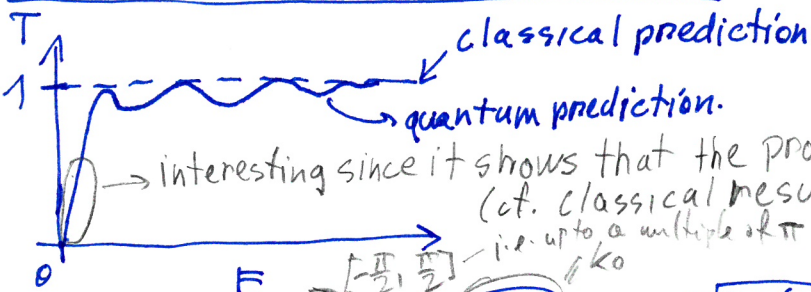 T
classical prediction
1
quantum prediction.
interesting since it shows that the pro
(cf. classical resu
i.e. up to a multiple of π
0 E [-π/2, π/2] k₀